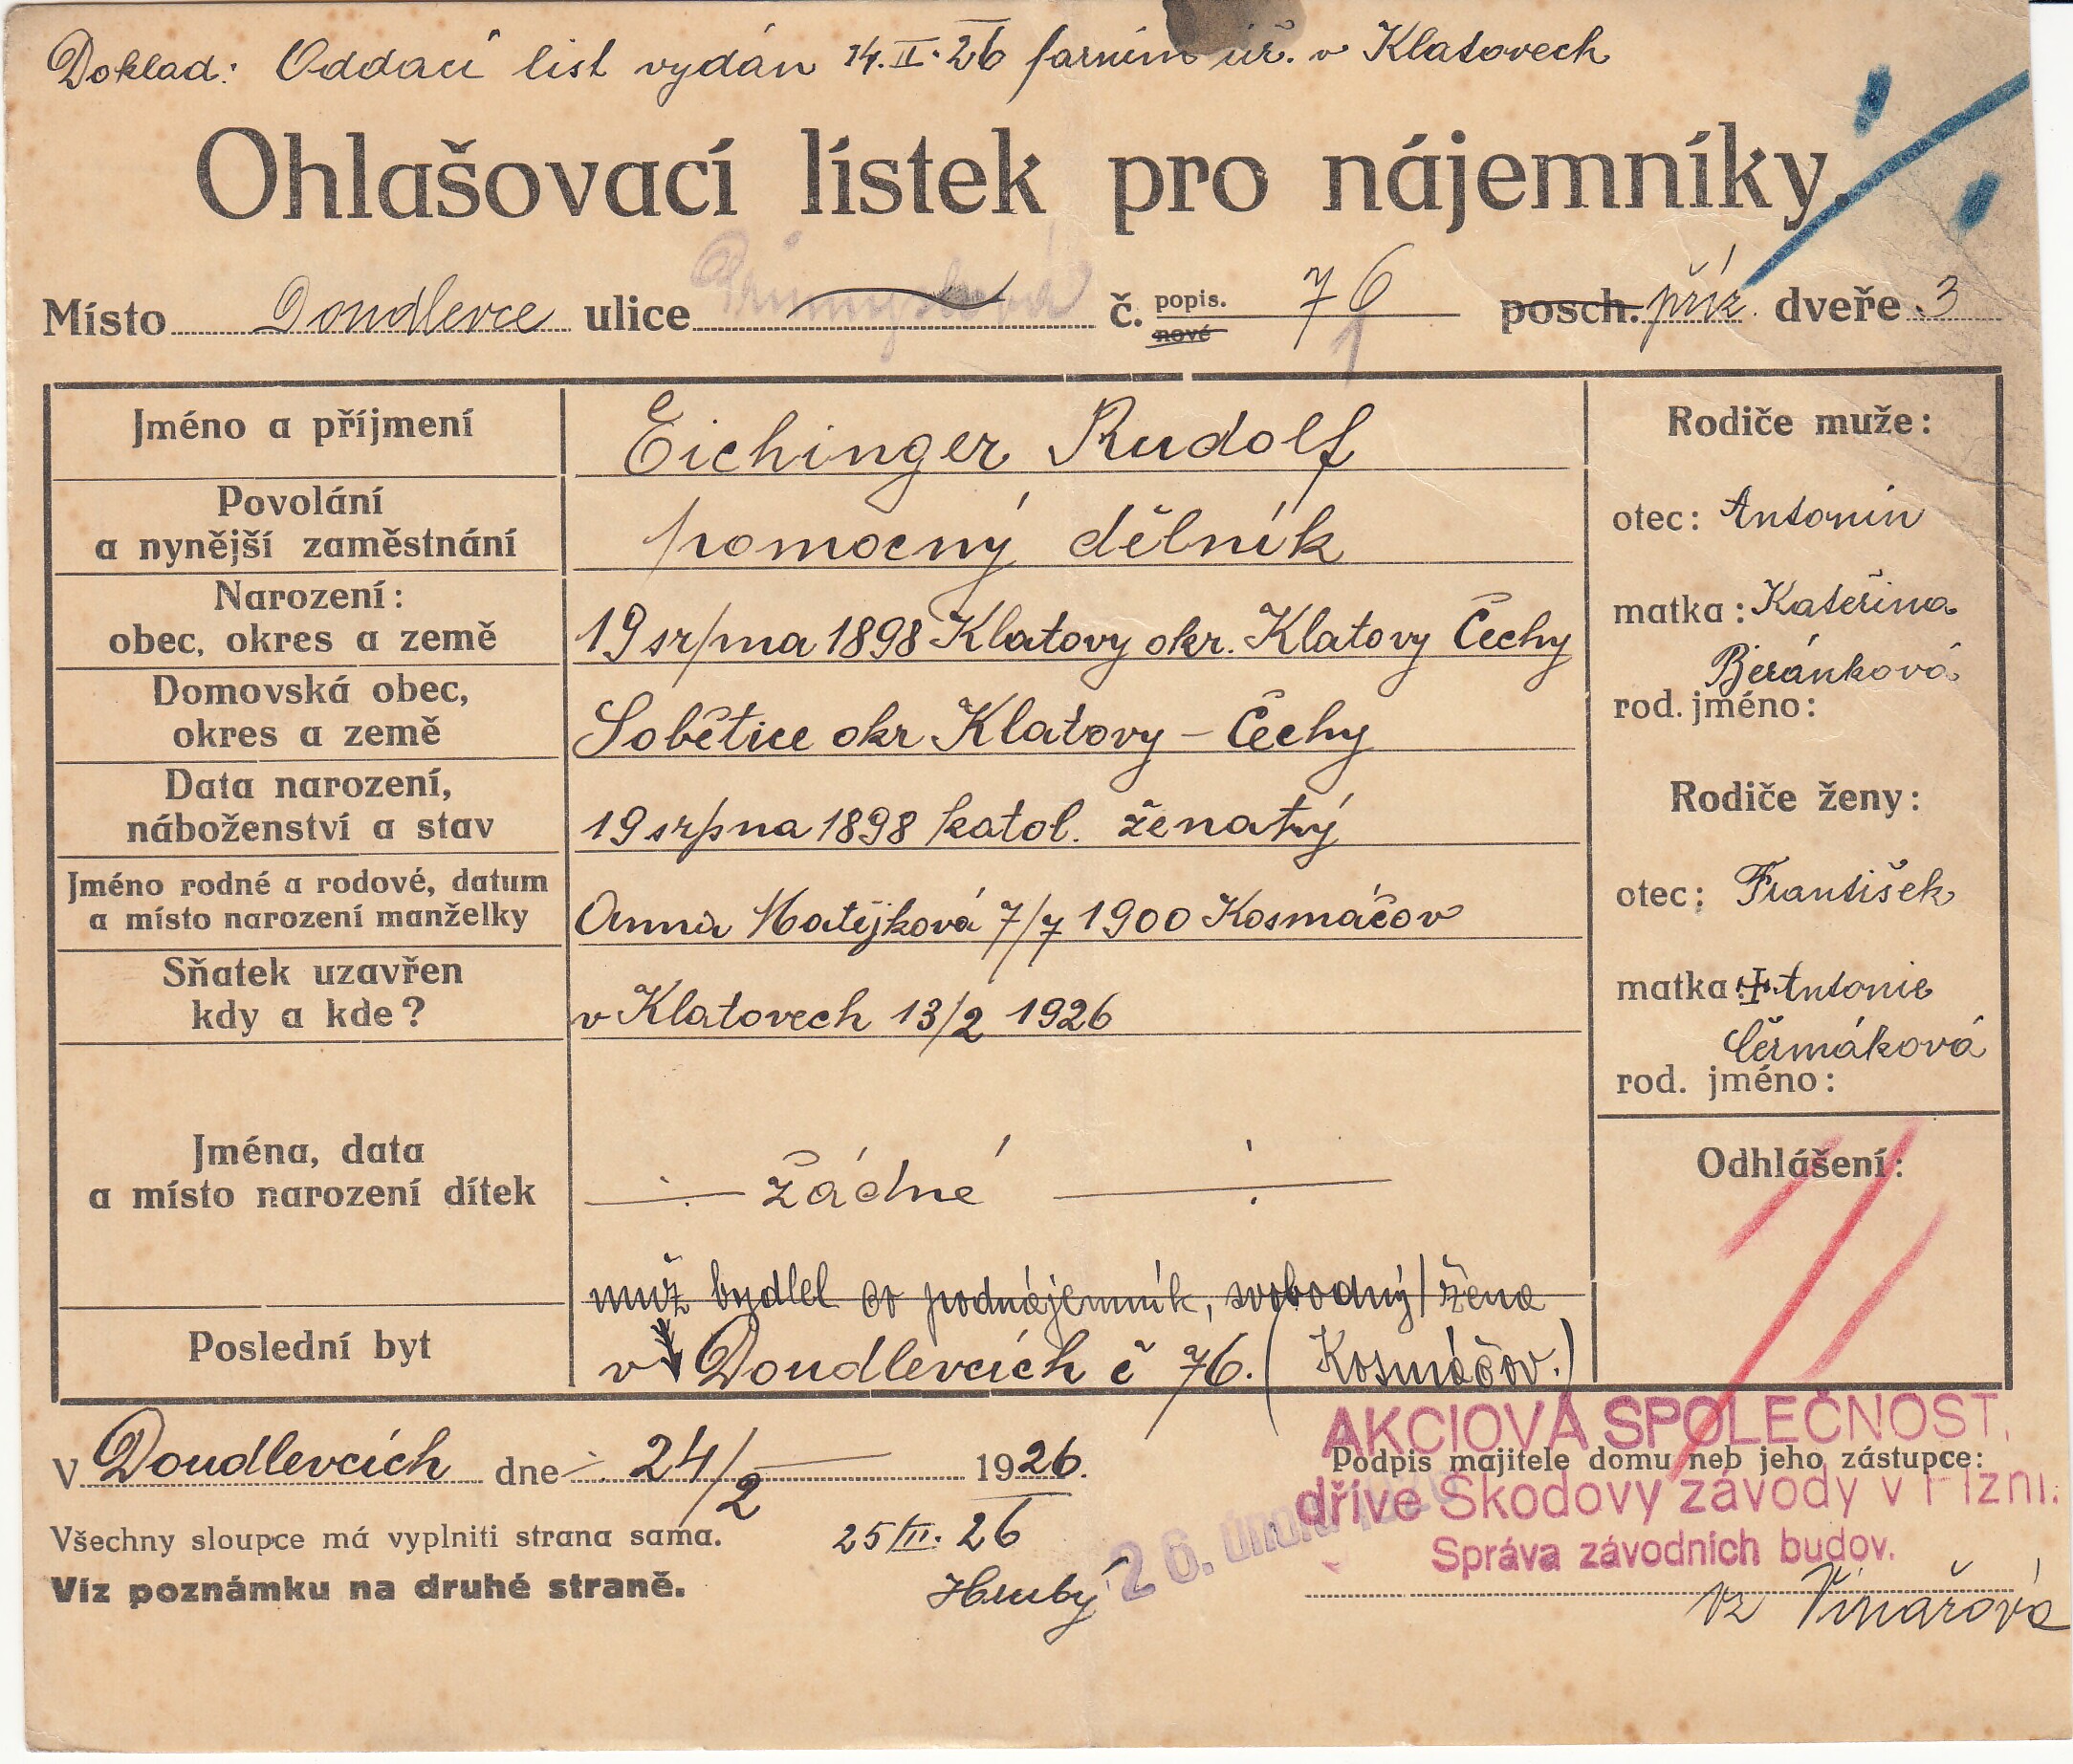 Doklad: Oddací list vydán 14.II.26 farním úř. v Klatovech
Ohlašovací lístek pro nájemníky.
Místo Doudlevce ulice Průmyslová č. popis. nové 76 1 posch. příz. dveře 3
Jméno a příjmení
Eichinger Rudolf
Povolání
a nynější zaměstnání
pomocný dělník
Narození:
obec, okres a země
19 srpna 1898 Klatovy okr. Klatovy Čechy
Domovská obec,
okres a země
Sobětice okr Klatovy – Čechy
Data narození,
náboženství a stav
19 srpna 1898 katol. ženatý
Jméno rodné a rodové, datum
a místo narození manželky
Anna Matějková 7/7 1900 Kosmáčov
Sňatek uzavřen
kdy a kde?
v Klatovech 13/2 1926
Jména, data
a místo narození dítek
žádné
Poslední byt
muž bydlel co podnájemník, svobodný/žena
v Doudlevcích č 76. (Kosmáčov.)
Rodiče muže:
otec: Antonín
matka: Kateřina
Beránková
rod. jméno:
Rodiče ženy:
otec: František
matka: Antonie
Čermáková
rod. jméno:
Odhlášení:
V Doudlevcích dne 24/2 1926.
Všechny sloupce má vyplniti strana sama.
Víz poznámku na druhé straně.
25/II. 26
Hrubý
26. února
AKCIOVÁ SPOLEČNOST,
Podpis majitele domu neb jeho zástupce:
dříve Škodovy závody v Plzni.
Správa závodních budov.
vz Vinářová